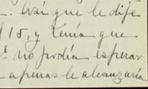 . Así que le dije
15, y tenía que
no podía esperar
apenas le alcanzaría